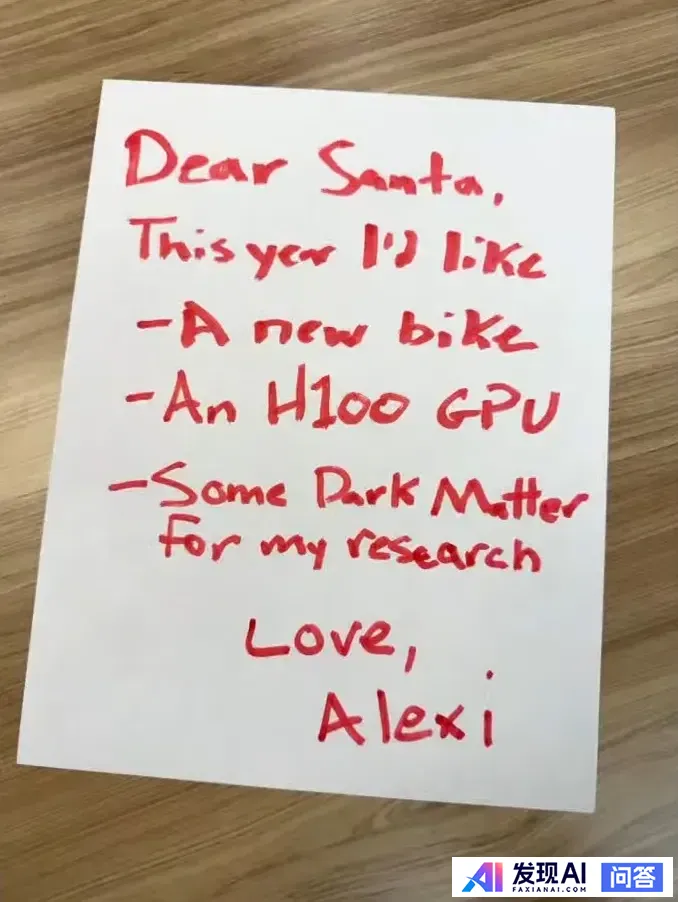 Dear Santa,
This year I'd like
-A new bike
-An H100 GPU
-Some Dark Matter
for my research
Love,
Alexi
发现AI 问答
FAXIANAI.COM